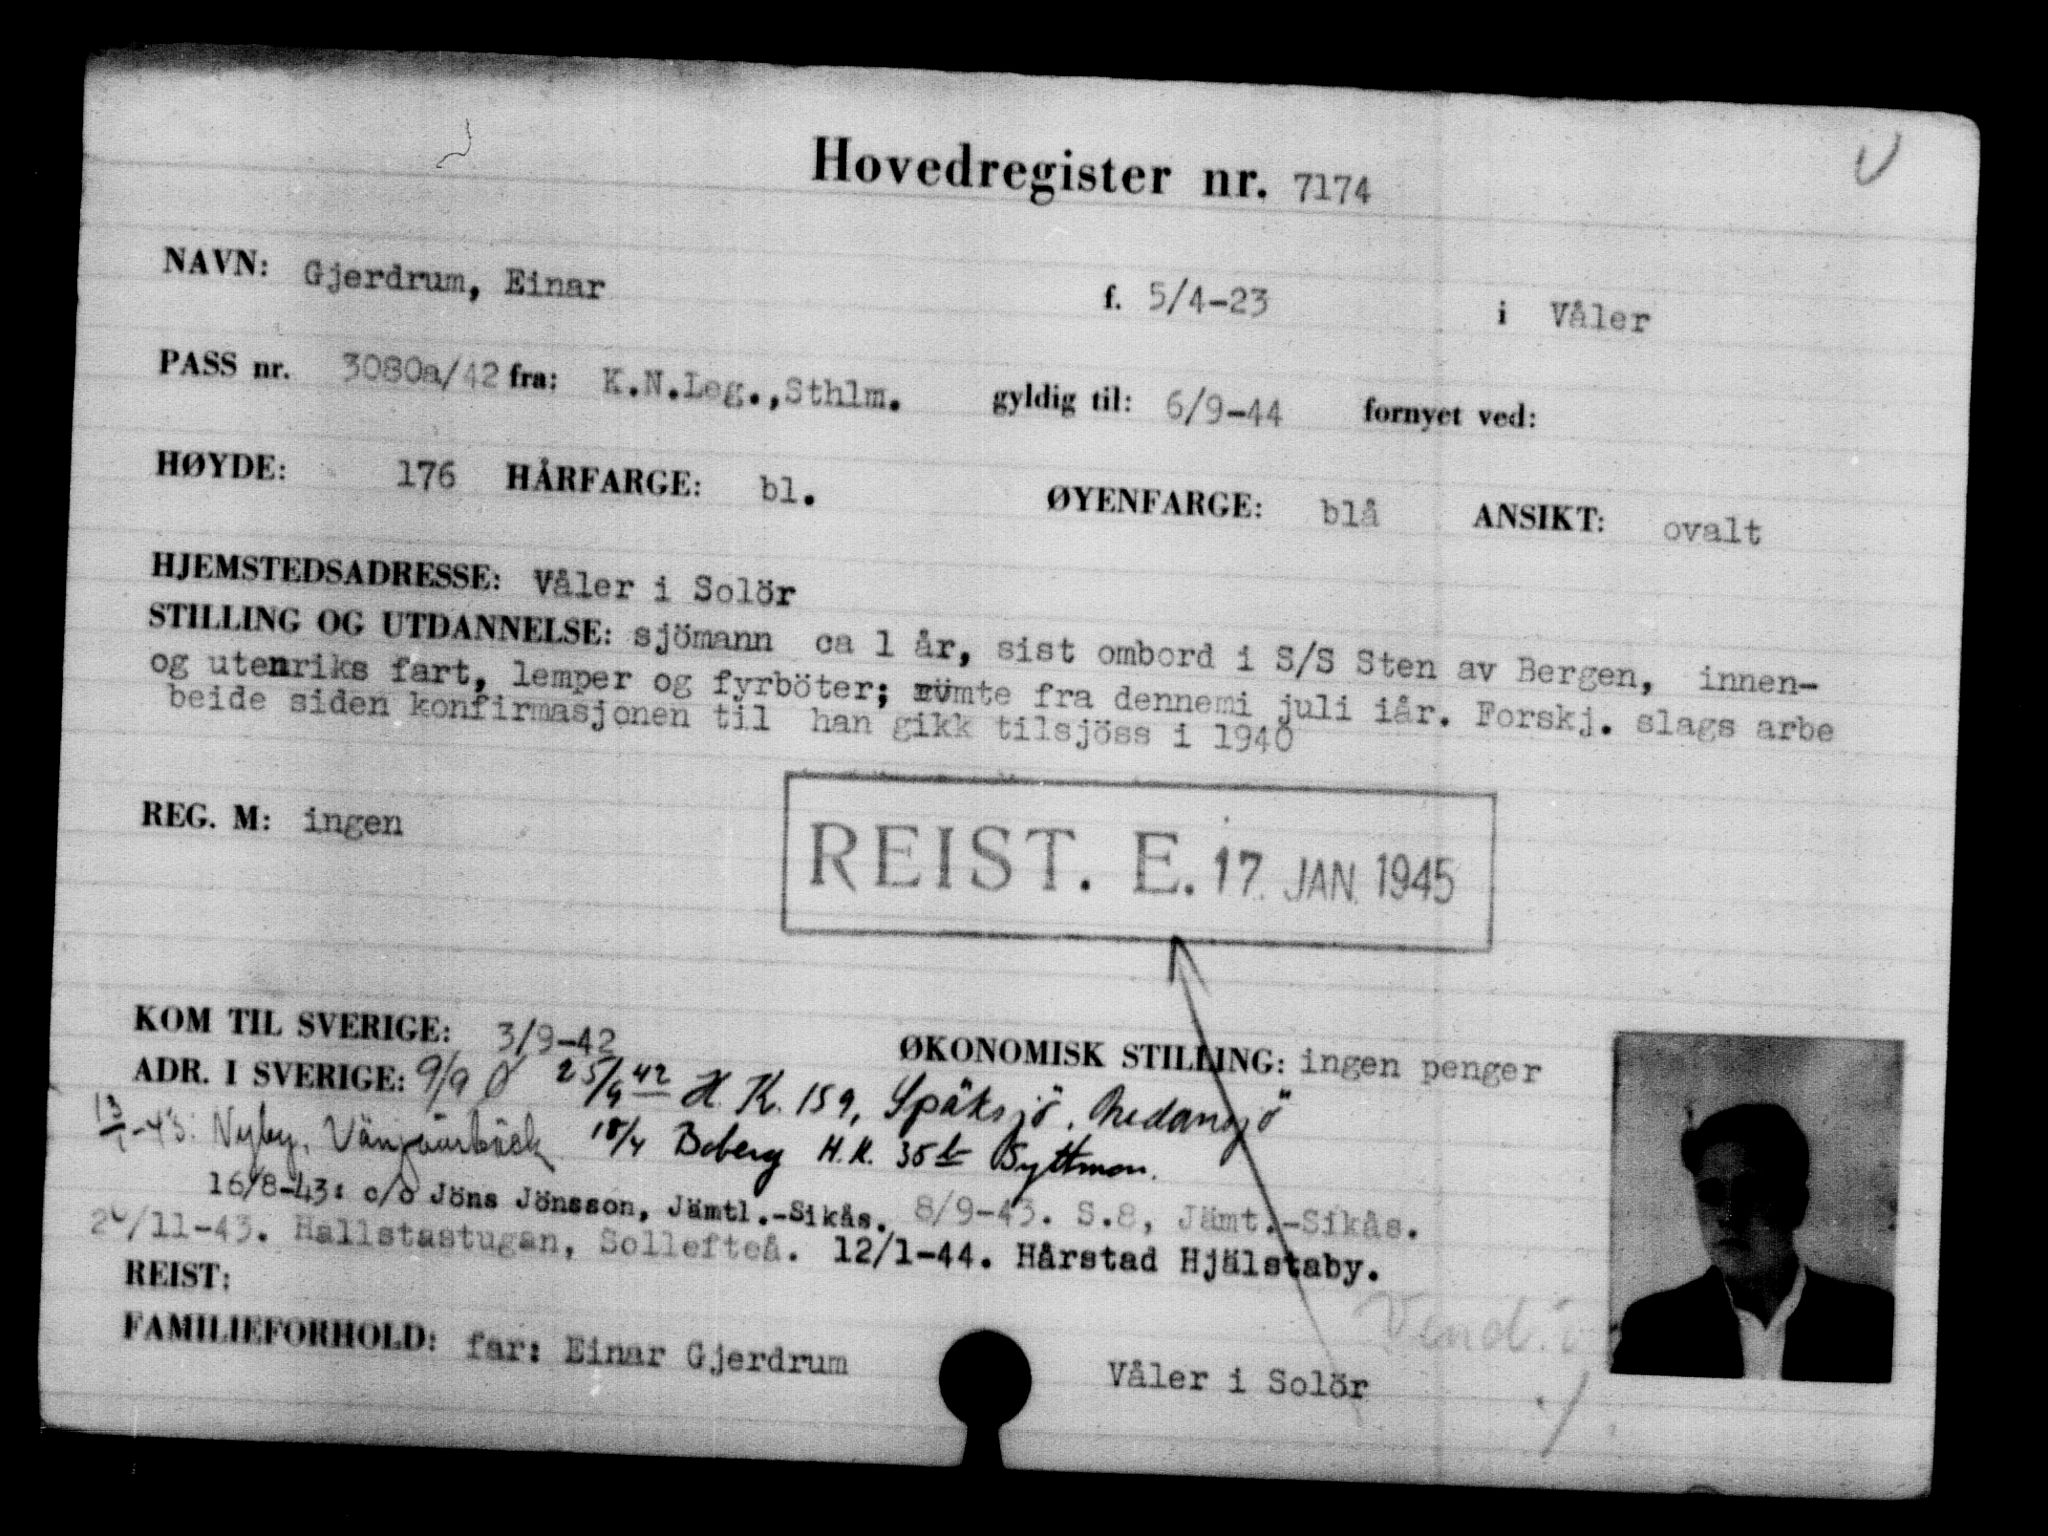 Hovedregister nr. 7174
NAVN: Gjerdrum, Einar f. 5/4-23 i Våler
PASS nr. 3080a/42 fra: K.N.Leg.,Sthlm. gyldig til: 6/9-44 fornyet ved:
HØYDE: 176 HÅRFARGE: bl. ØYENFARGE: blå ANSIKT: ovalt
HJEMSTEDSADRESSE: Våler i Solör
STILLING OG UTDANNELSE: sjömann ca 1 år, sist ombord i S/S Sten av Bergen, innen-
og utenriks fart, lemper og fyrböter; römte fra dennemi juli iår. Forskj. slags arbe
beide siden konfirmasjonen til han gikk tilsjöss i 1940
REG. M: ingen
REIST. E. 17. JAN. 1945
KOM TIL SVERIGE: 3/9-42 ØKONOMISK STILLING: ingen penger
ADR. I SVERIGE: 9/9 Ö 25/9 42 H.K. 159, Späksjö, Nedansjö
13/1-43: Nyby, 18/4 Boberg H.K. 35
16/8-43: c/o Jöns Jönsson, Jämtl.-Sikås. 8/9-43. S.8, Jämt.-Sikås.
/11-43. Hallstastugan, Sollefteå. 12/1-44. Hårstad Hjälstaby.
REIST:
Vend.
FAMILIEFORHOLD: far: Einar Gjerdrum Våler i Solör